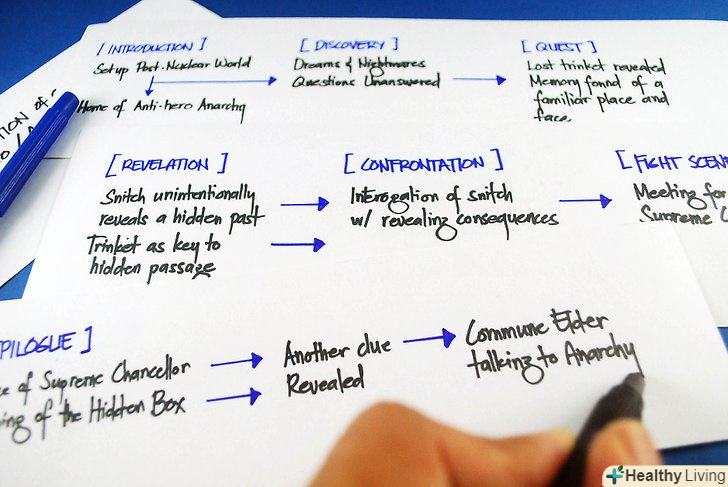 [INTRODUCTION]
Setup Post-Nuclear World
Home of Anti-hero Anarchy
[DISCOVERY]
Dreams & Nightmares
Questions Unanswered
[QUEST]
Lost trinket revealed
Memory found of a
familiar place and
face.
[REVELATION]
Snitch unintentionally
reveals a hidden past
Trinket as key to
hidden passage
[CONFRONTATION]
Interogation of snitch
w/ revealing consequences
[FIGHT SCEN
Meeting for
Supreme C
PILOGUE]
of Supreme Chancellor
ing of the Hidden Box
Another clue
Revealed
Commune Elder
talking to Anarchy
TION of
Healthy Living